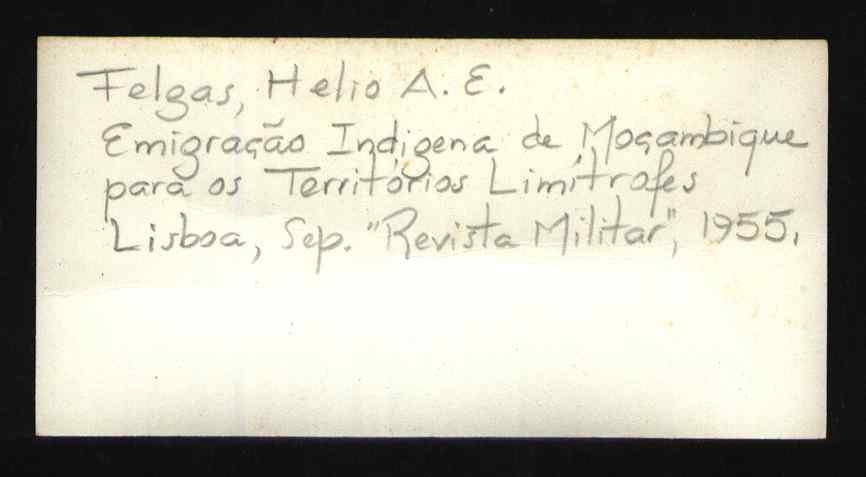 Felgas, Helio A. E.
Emigração Indigena de Moçambique
para os Territórios Limítrofes
Lisboa, Sep. "Revista Militar", 1955.